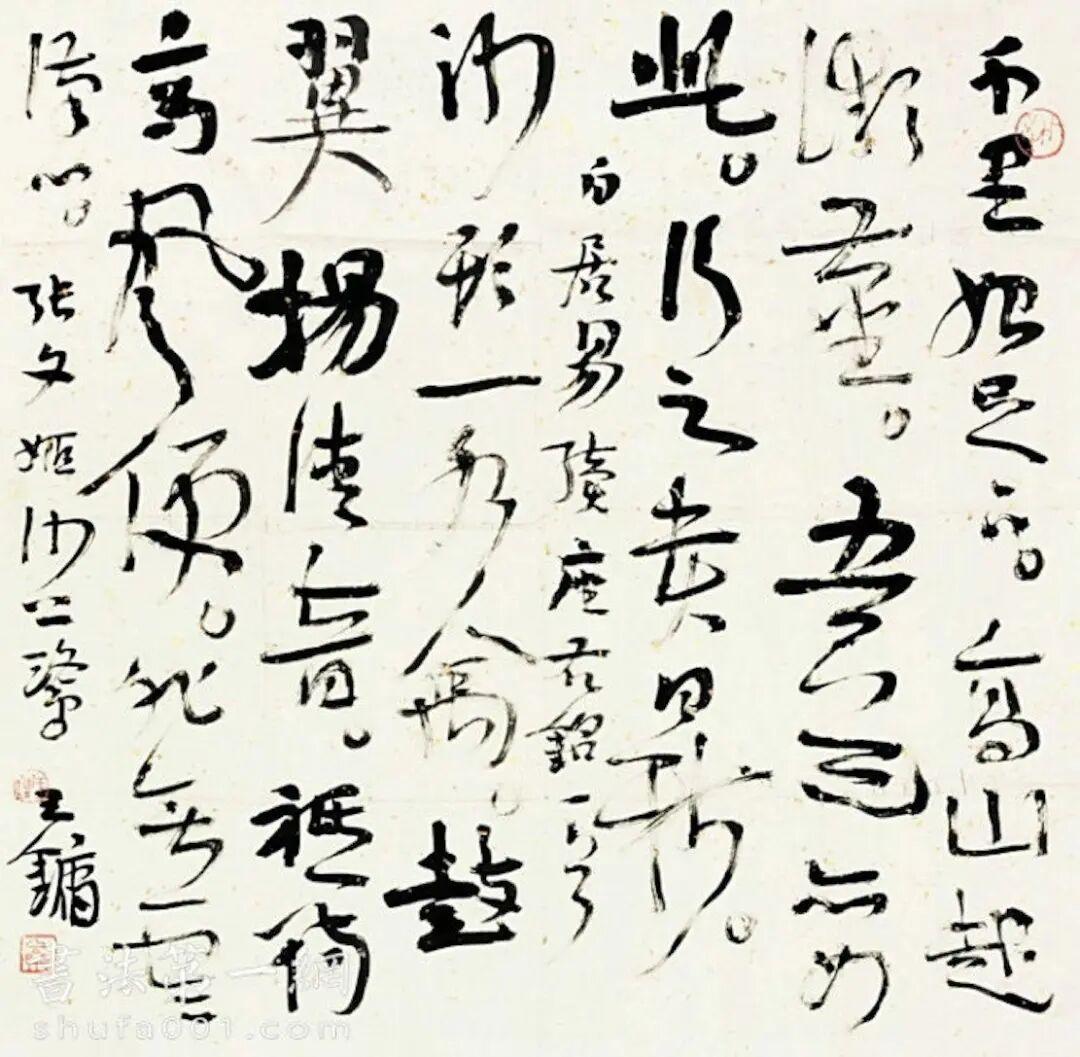 千里始足下。高山起
微塵。吾道亦如
此。行之貴日新。
白居易續座右銘
沙頭一水禽。鼓
翼揚清音。祗
高風便。非無雲
漢心。張文姬沙上鷺 王鏞
書法第一網
shufa001.com